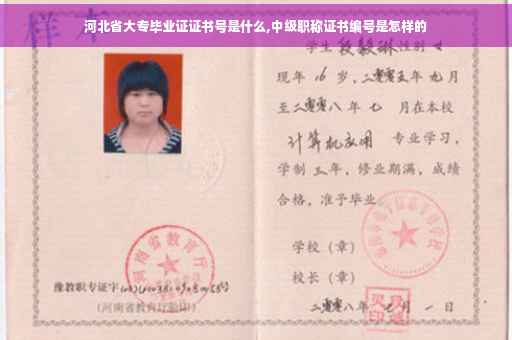 河北省大专毕业证证书号是什么,中级职称证书编号是怎样的
样本
学生 段毅琳 性别 女
现年 16 岁，二零零五年 九月
至二零零八年 七 月在本校
计算机应用 专业学习，
学制 三年，修业期满，成绩
合格，准予毕业
学校（章）
校长（章）
二零零八年 七月 一 日
河南省教育厅
豫教职专证字
（河南省教育厅验印）